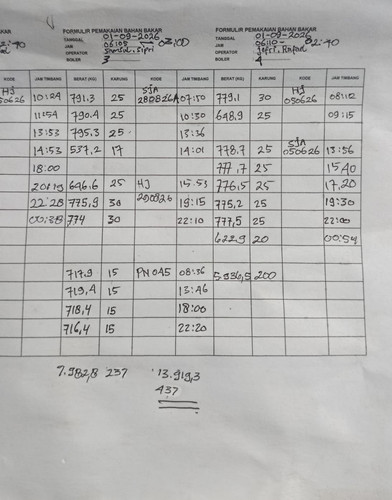 KAR FORMULIR PEMAKAIAN BAHAN BAKAR FORMULIR PEMAKAIAN BAHAN BAKAR
TANGGAL 01-09-2026 TANGGAL 01-09-2026
JAM 06:00 - 03:00 JAM 06:10 - 02:40
OPERATOR Samsul, Sipri OPERATOR
BOILER 3 BOILER 4
KODE JAM TIMBANG BERAT (KG) KARUNG KODE JAM TIMBANG BERAT (KG) KARUNG KODE JAM TIMBANG
HJ SJA HJ
50626 10:24 791.3 25 280826A 07:50 779,1 30 050626 08:12
11:54 790.4 25 10:30 648,9 25 09:15
13:53 795.3 25 13:36
14:53 537,2 17 14:01 778.7 25 SJA 050626 13:56
18:00 777,7 25 15,40
20:19 646.6 25 HJ 15.53 776,5 25 17,20
22:28 775,9 30 290826 19:15 775,2 25 19:30
00:38 774 30 22:10 777,5 25 22:00
622.9 20 00:54
717.9 15 PN 045 08:36 5.936,5 200
719,4 15 13:46
718,4 15 18:00
716,4 15 22:20
7.982,8 237 13.919,3
437